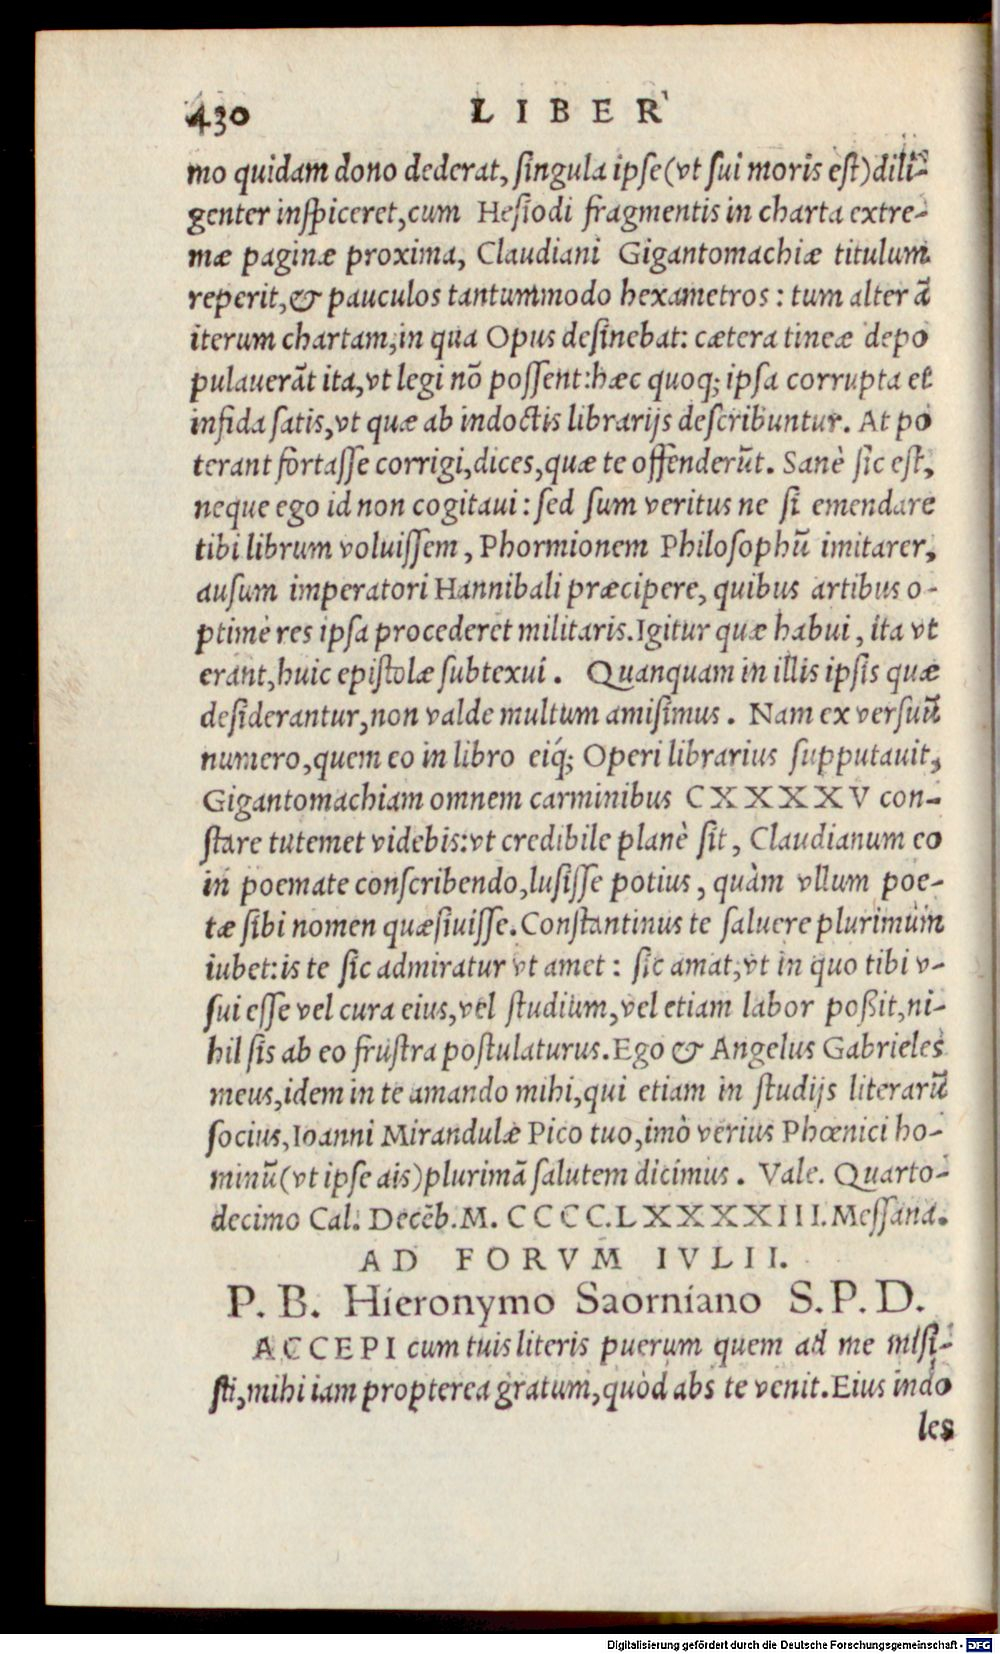 430 LIBER
mo quidam dono dederat, singula ipse (vt sui moris est) dili-
genter inspiceret, cum Hesiodi fragmentis in charta extre-
mæ paginæ proxima, Claudiani Gigantomachiæ titulum
reperit, & pauculos tantummodo hexametros: tum alterā
iterum chartam, in qua Opus desinebat: cætera tineæ depo
pulauerāt ita, vt legi nō possent: hæc quoq; ipsa corrupta et
infida satis, vt quæ ab indoctis librarijs describuntur. At po
terant fortasse corrigi, dices, quæ te offenderūt. Sanè sic est,
neque ego id non cogitaui: sed sum veritus ne si emendare
tibi librum voluissem, Phormionem Philosophū imitarer,
ausum imperatori Hannibali præcipere, quibus artibus o-
ptimè res ipsa procederet militaris. Igitur quæ habui, ita vt
erant, huic epistolæ subtexui. Quanquam in illis ipsis quæ
desiderantur, non valde multum amisimus. Nam ex versuū
numero, quem eo in libro eiq́; Operi librarius supputauit,
Gigantomachiam omnem carminibus CXXXXV con-
stare tutemet videbis: vt credibile planè sit, Claudianum eo
in poemate conscribendo, lusisse potius, quàm vllum poe-
tæ sibi nomen quæsiuisse. Constantinus te saluere plurimùm
iubet: is te sic admiratur vt amet: sic amat, vt in quo tibi v-
sui esse vel cura eius, vel studium, vel etiam labor poßit, ni-
hil sis ab eo frustra postulaturus. Ego & Angelus Gabrieles
meus, idem in te amando mihi, qui etiam in studijs literarū
socius, Ioanni Mirandulæ Pico tuo, imò verius Phœnici ho-
minū (vt ipse ais) plurimā salutem dicimus. Vale. Quarto-
decimo Cal. Decēb. M. CCCC. LXXXXIII. Messana.
AD FORVM IVLII.
P. B. Hieronymo Saorniano S. P. D.
ACCEPI cum tuis literis puerum quem ad me misi-
sti, mihi iam propterea gratum, quòd abs te venit. Eius indo
les
Digitalisierung gefördert durch die Deutsche Forschungsgemeinschaft - DFG